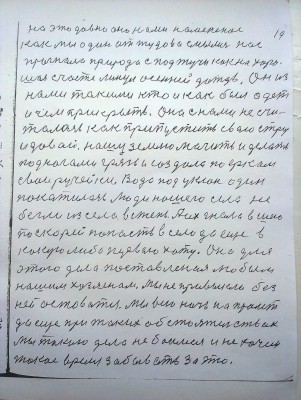 19
на это давно оно нами налаженое
как мы один от тудова смылись нас
прогнала природа с под тучи как на хоро-
шая счасте линул осенний дождь. Он из
нами такими кто и как был одет
и чем прикрыть. Она с нами не счи-
талась как припустить свои стру
и давай. нашу землю мочить и делать
под ногами грязь и создала по яркам
свои ручейки. Вода под уклон один
покатилась люди нашего села не
бегли из села в степь А их гнало в село
поскорей попасть в село да еще в
какую либо целевую хату. Она для
этого дела поставленая мобыть
нашим хозяенам. Мы не привыкли без
ней остовать. Мы всю ночь на пролет
да еще при таких обстоятельствах
мы такого дела не боимся и не хочем
такое время забывать за это.